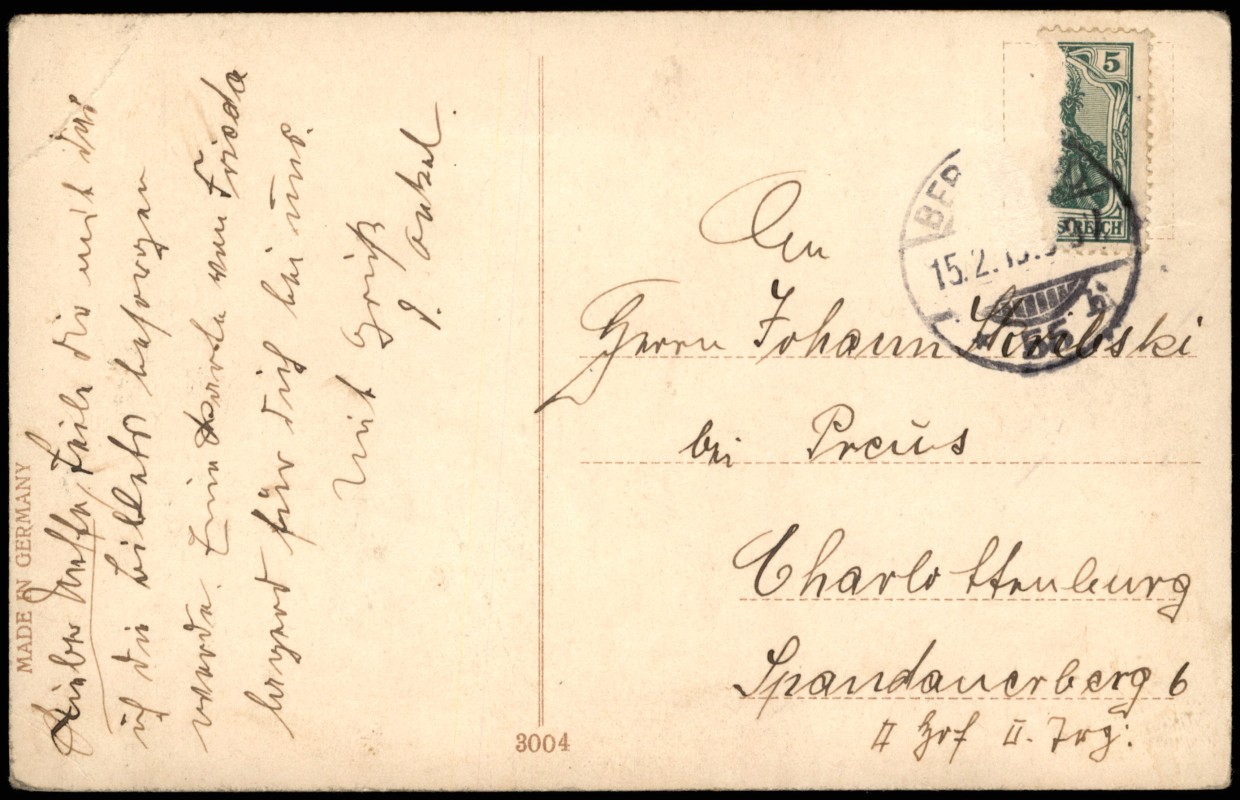 Lieber Neffe, teile dir mit das
ich die Billets besorgen
werde. Eine Karte von Frieda
lagerd für dich bei uns.
Mit Gruß
J Onkel.
MADE IN GERMANY
3004
5
SREICH
BER
15.2.
55 b
An
Herrn Johann Skrebski
bei Preus
Charlottenburg
Spandauerberg 6
II Hof II.